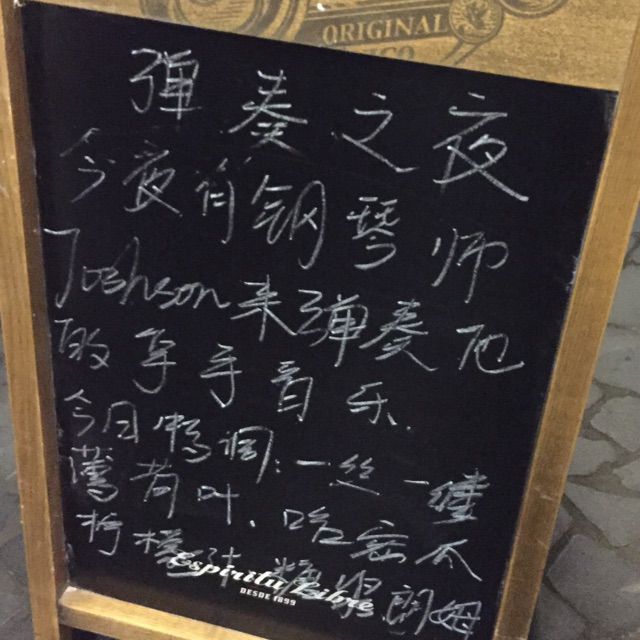 ORIGINAL
弹奏之夜
今夜有钢琴师
Joshson来弹奏他
的拿手音乐.
今日调:一丝一缕
薄荷叶、哈密瓜
柠檬 糖浆朗姆
Espiritu Libre
DESDE 1899